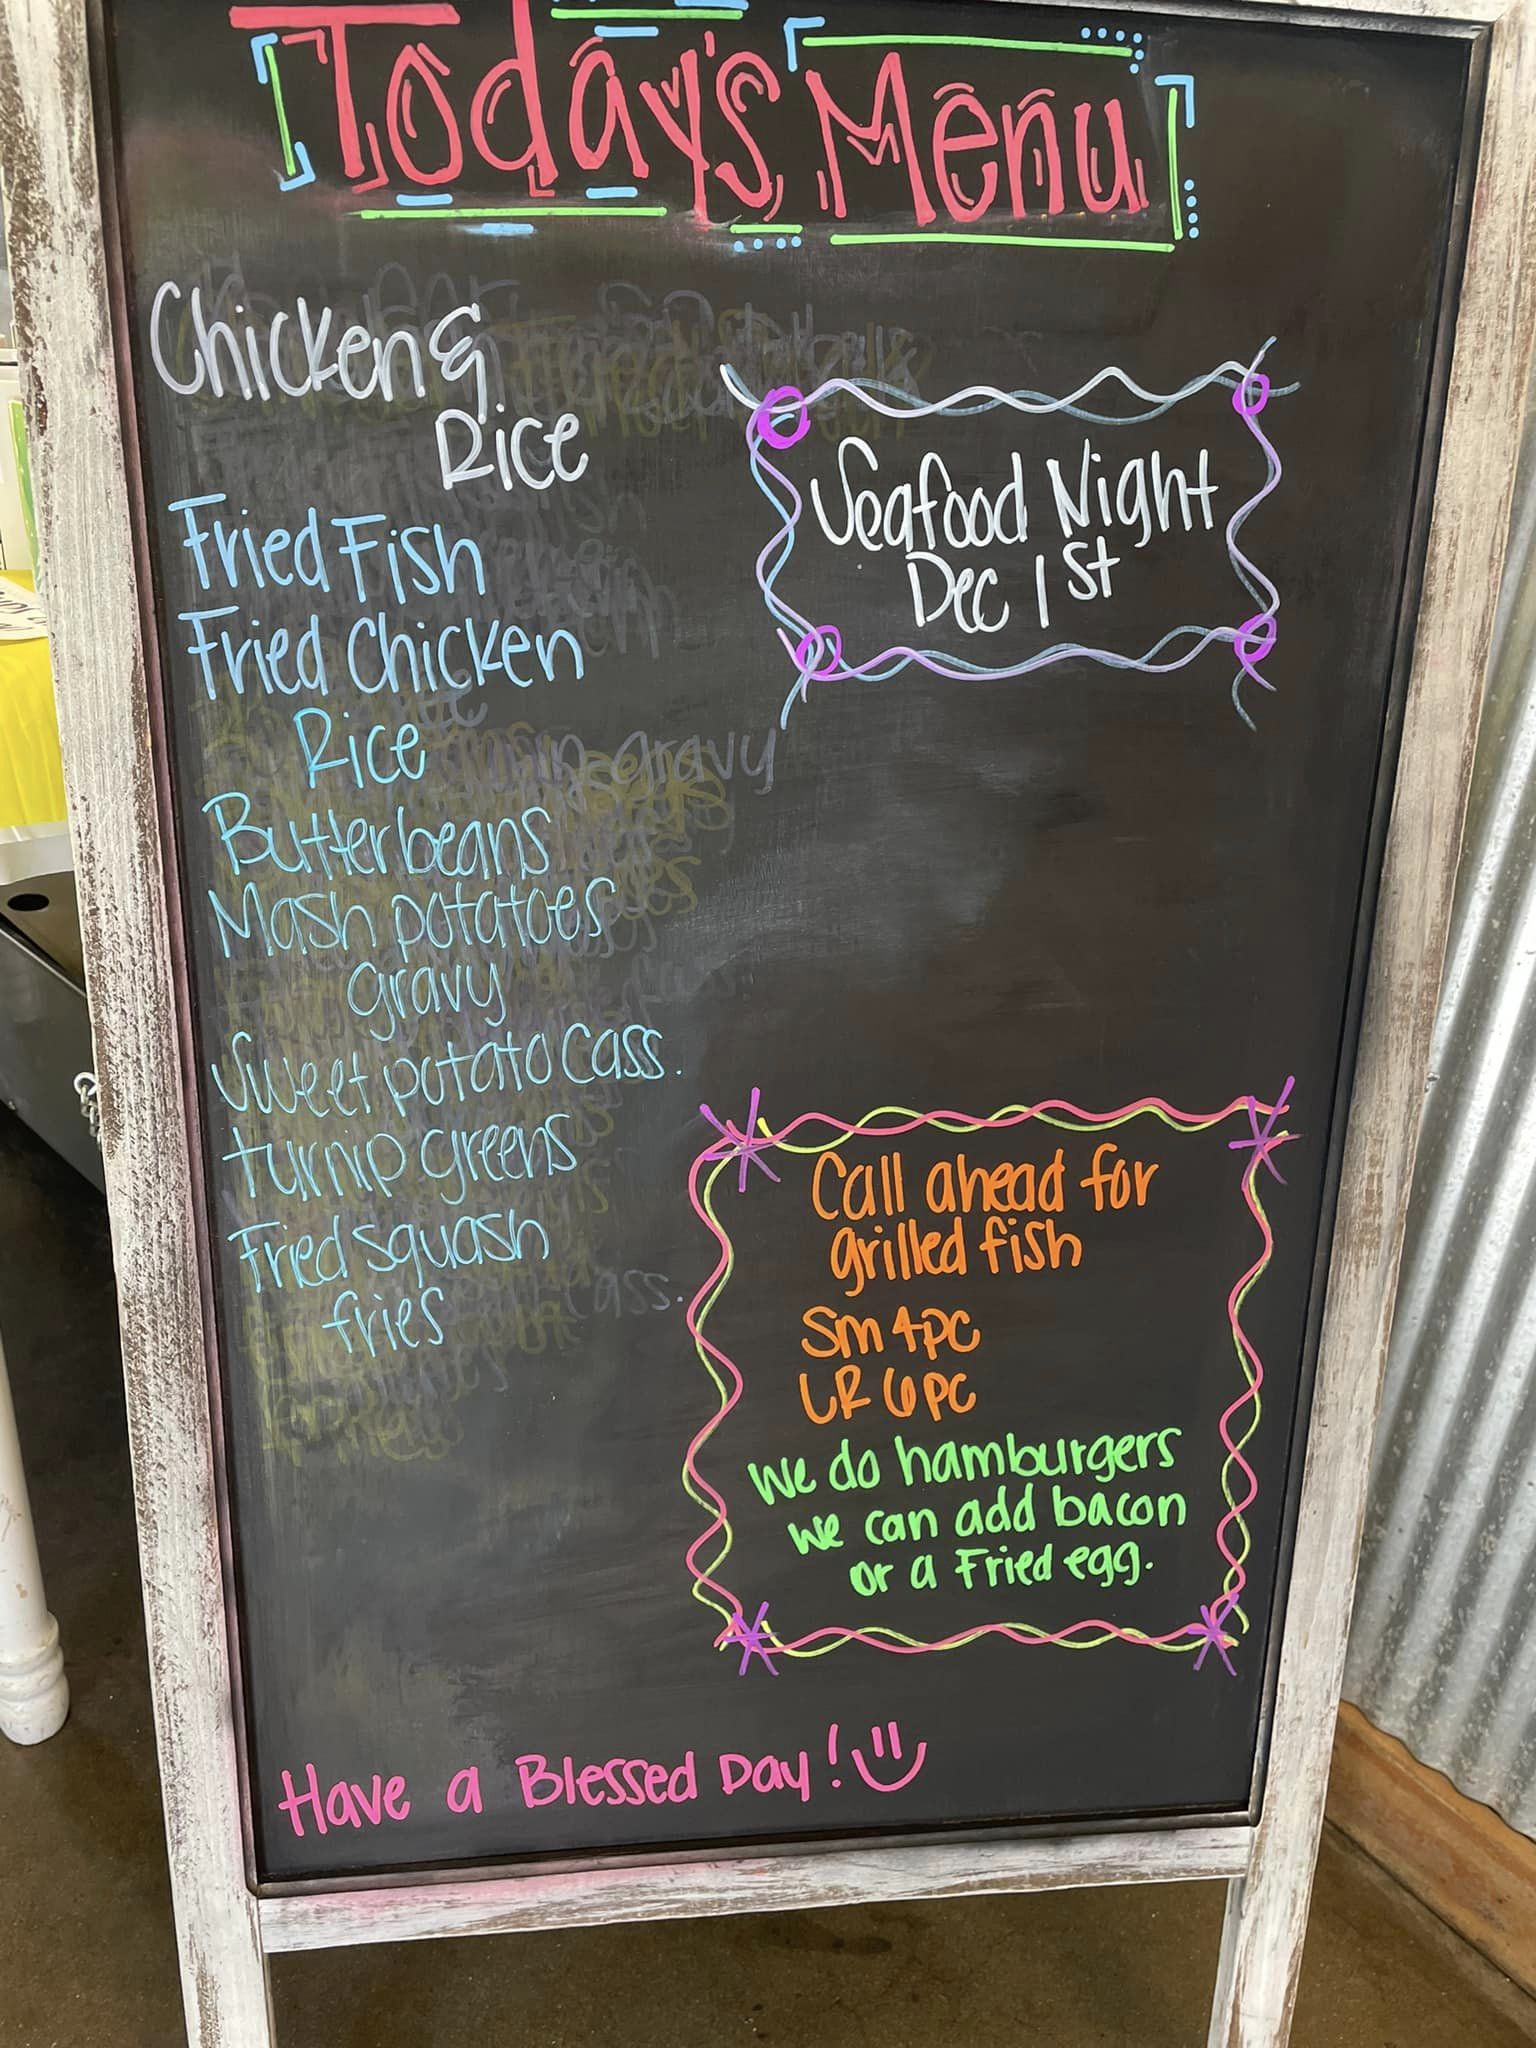 Today's Menu
Chicken &
Rice
Fried Fish
Fried Chicken
Rice
Butterbeans
Mash potatoes
gravy
Sweet potato Cass.
turnip greens
Fried squash
fries
Seafood Night
Dec 1st
Call ahead for
grilled fish
Sm 4pc
LR 6pc
We do hamburgers
we can add bacon
or a Fried egg.
Have a Blessed Day!